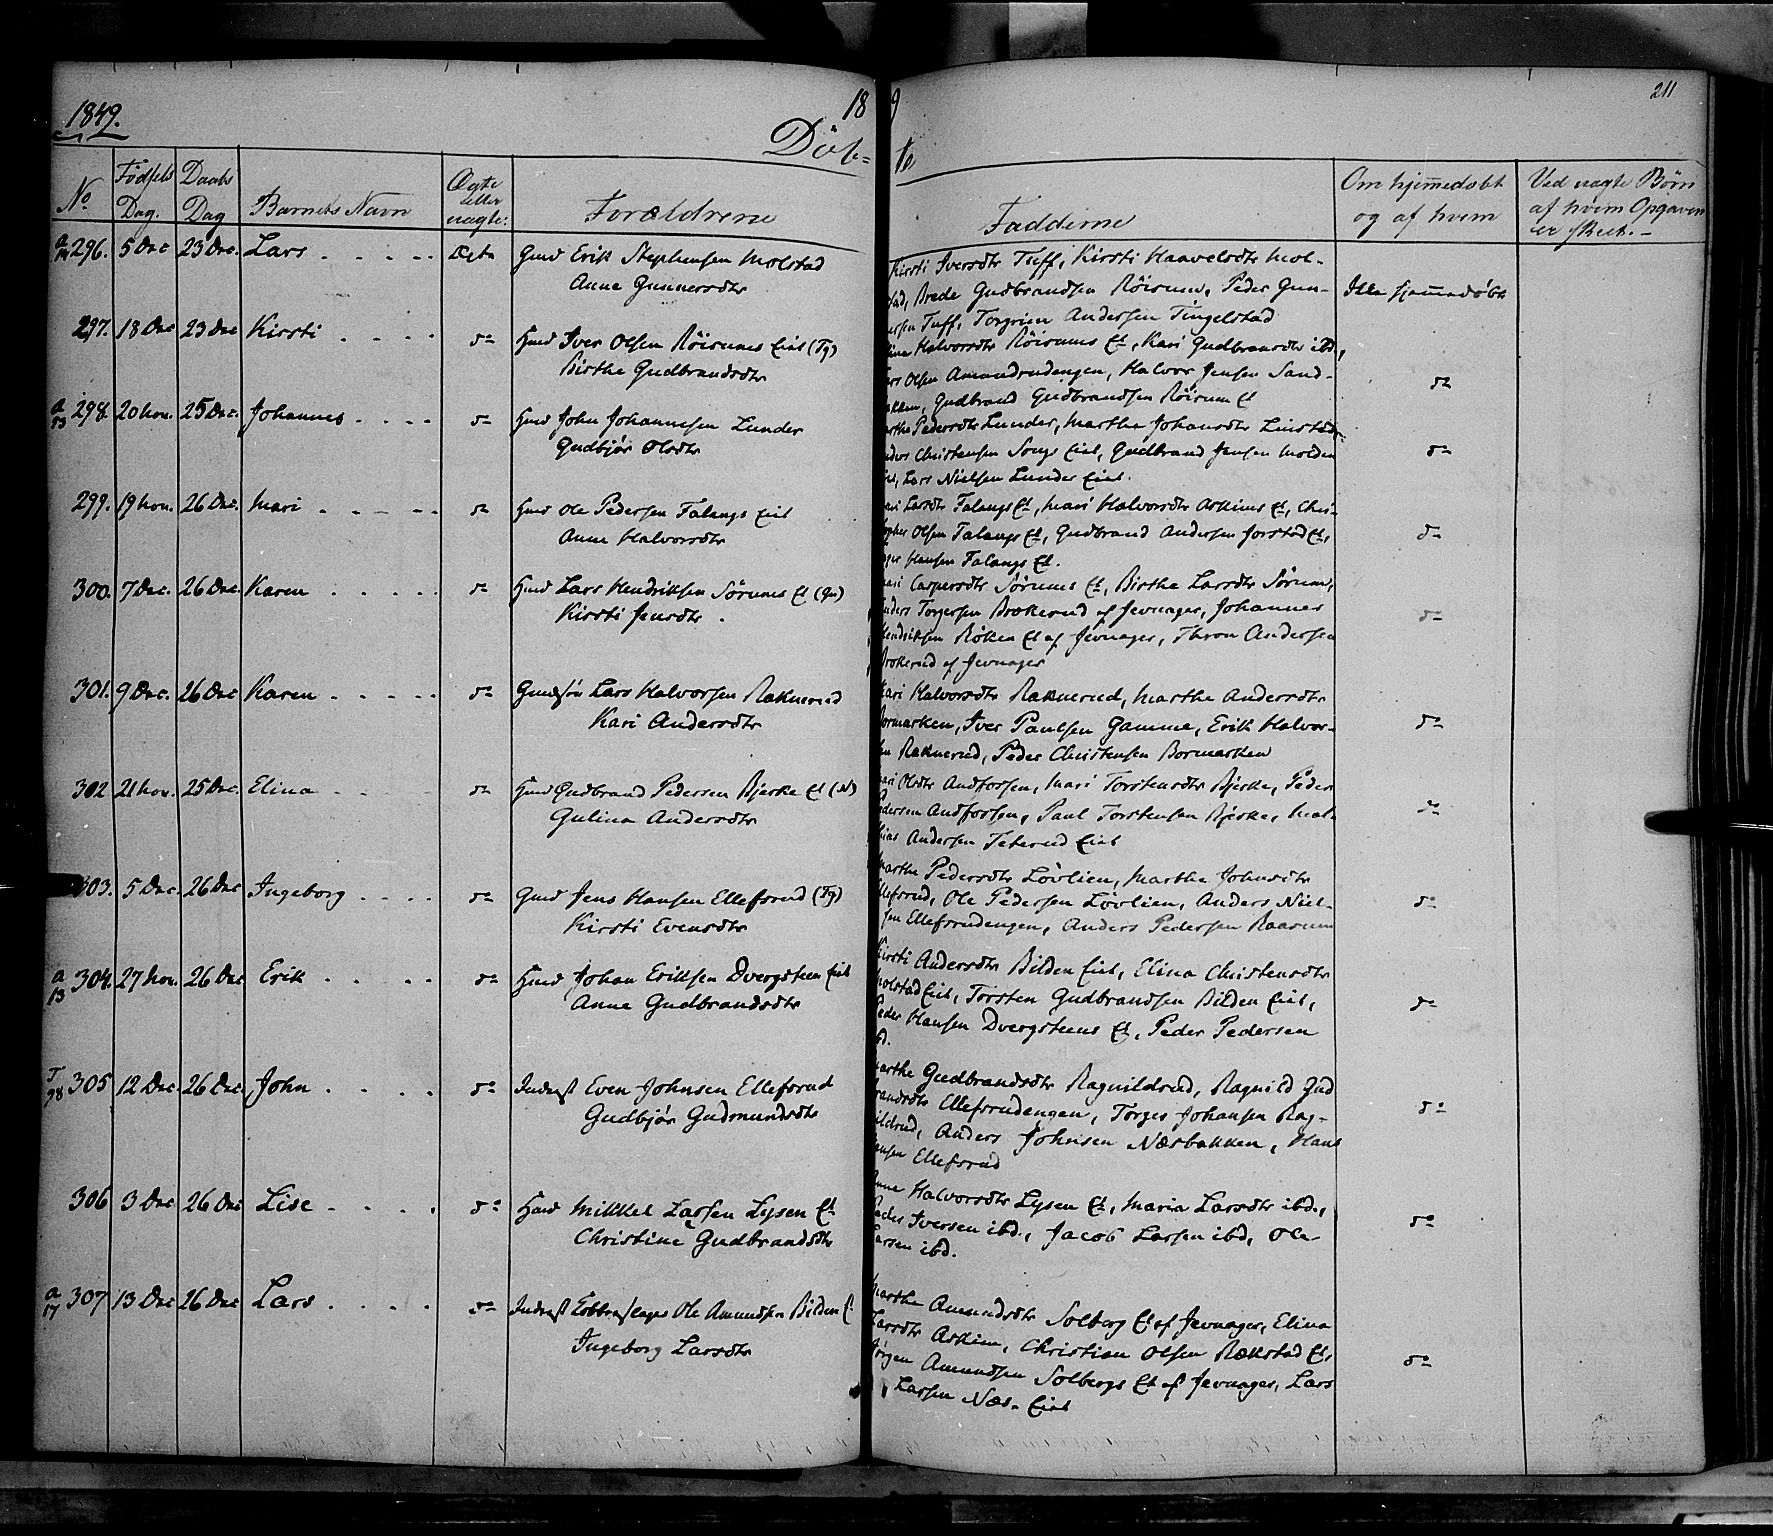 1849.
18
9
211
Döb=
te
No
Födsels Dag.
Daabs Dag
Barnets Navn
Ægte eller uægte:
Forældrene
Fadderne
Om hjemmedöbt og af hvem
Ved uægte Börn af hvem Opgaven er skeet.-
296. 5 Dec 23 Dec. Lars Ægte Gmd Erik Stephensen Molstad
Anne Gunnersdtr
Kirsti Iversdtr Tuff, Kirsti Haavelsdtr Mol-
stad, Brede Gudbrandsen Röisum, Peder Gun-
nersen Tuff, Torgrim Andersen Tingelstad
Ikke hjemmedöbt
297. 18 Dec 23 Dec Kirsti do Hmd Iver Olsen Röisums Eiet (Tg)
Birthe Gudbrandsdtr
Halvorsdtr Röisums Et, Kari Gudbrandsdtr ibd,
Lars Olsen Amundrudengen, Halvor Jensen Sand-
bakken, Gudbrand Gudbrandsen Röisum Et
do
298. 20 Nov. 25 Dec. Johannes do Hmd John Johannesen Lunder
Gudbjör Olsdtr
Marthe Pedersdtr Lunder, Marthe Johansdtr Linstad
Anders Christensen Sougs Eiet, Gudbrand Jensen Molden
Lars Nielsen Lunder Eiet.
do
299. 19 Nov. 26 Dec. Mari do Hmd Ole Pedersen Falangs Eiet
Anne Halvorsdtr
Mari Larsdtr Falangs Et, Mari Halvorsdtr Askims Et, Chri-
stopher Olsen Falangs Et, Gudbrand Andersen Jorstad Et,
Hansen Falangs Et.
do
300. 7 Dec. 26 Dec. Karen do Hmd Lars Hendriksen Sörums Et (Gn)
Kirsti Jensdtr
Mari Caspersdtr Sörums Et, Birthe Larsdtr Sörum,
Anders Torgersen Brækerud af Jevnager, Johannes
Hendriksen Röken Et af Jevnager, Thron Andersen
Brækerud af Jevnager
do
301. 9 Dec. 26 Dec Karen do Gmdsön Lars Halvorsen Raknerud
Kari Andersdtr
Kari Halvorsdtr Raknerud, Marthe Andersdtr
Bormarken, Iver Paulsen Gamme, Erik Halvor-
sen Raknerud, Peder Christensen Bormarken
do
302 21 Nov. 25 Dec. Elina do Hmd Gudbrand Pedersen Bjerke Et (N)
Gulina Andersdtr
Mari Olsdtr Andfossen, Mari Torstensdtr Bjerke, Peder
Pedersen Andfossen, Paul Torstensen Bjerke, Mat-
hias Andersen Teterud Eiet
do
303. 5 Dec. 26 Dec Ingeborg do Gmd Jens Hansen Ellefsrud (Tg)
Kirsti Evensdtr
Marthe Pedersdtr Lövlien, Marthe Johnsdtr
Ellefsrud, Ole Pedersen Lövlien, Anders Niel-
sen Ellefsrudengen, Anders Pedersen Raasum
do
304. 27 Nov. 26 Dec Erik do Hmd Johan Eriksen Dvergsteen Eiet
Anne Gudbrandsdtr
Kirsti Andersdtr Bilden Eiet, Elina Christensdtr
Molstad Eiet, Torsten Gudbrandsen Bilden Eiet,
Peder Hansen Dvergsteens Et, Peder Pedersen
ibd.
do
305 12 Dec. 26 Dec John do Inderst Even Johnsen Ellefsrud
Gudbjör Gudmundsdtr
Marthe Gudbrandsdtr Ragnildrud, Ragnild Gud
brandsdtr Ellefsrudengen, Torger Johansen Rag-
nildrud, Anders Johnsen Næsbakken, Hans
Hansen Ellefsrud
do
306 3 Dec 26 Dec Lise do Hmd Mikkel Larsen Lysen Et
Christine Gudbrandsdtr
Anne Halvorsdtr Lysen Et, Maria Larsdtr ibd.,
Peder Iversen ibd., Jacob Larsen ibd, Ole
Larsen ibd.
do
307 13 Dec 26 Dec Lars do Inderst Kobberslager Ole Amundsen Bilden E
Ingeborg Larsdtr
Marthe Amundsdtr Solberg Et af Jevnager, Elina
Larsdtr Askim, Christian Olsen Rækstad Et,
Jörgen Amundsen Solbergs Et af Jevnager, Lars
Larsen Næs. Eiet
do